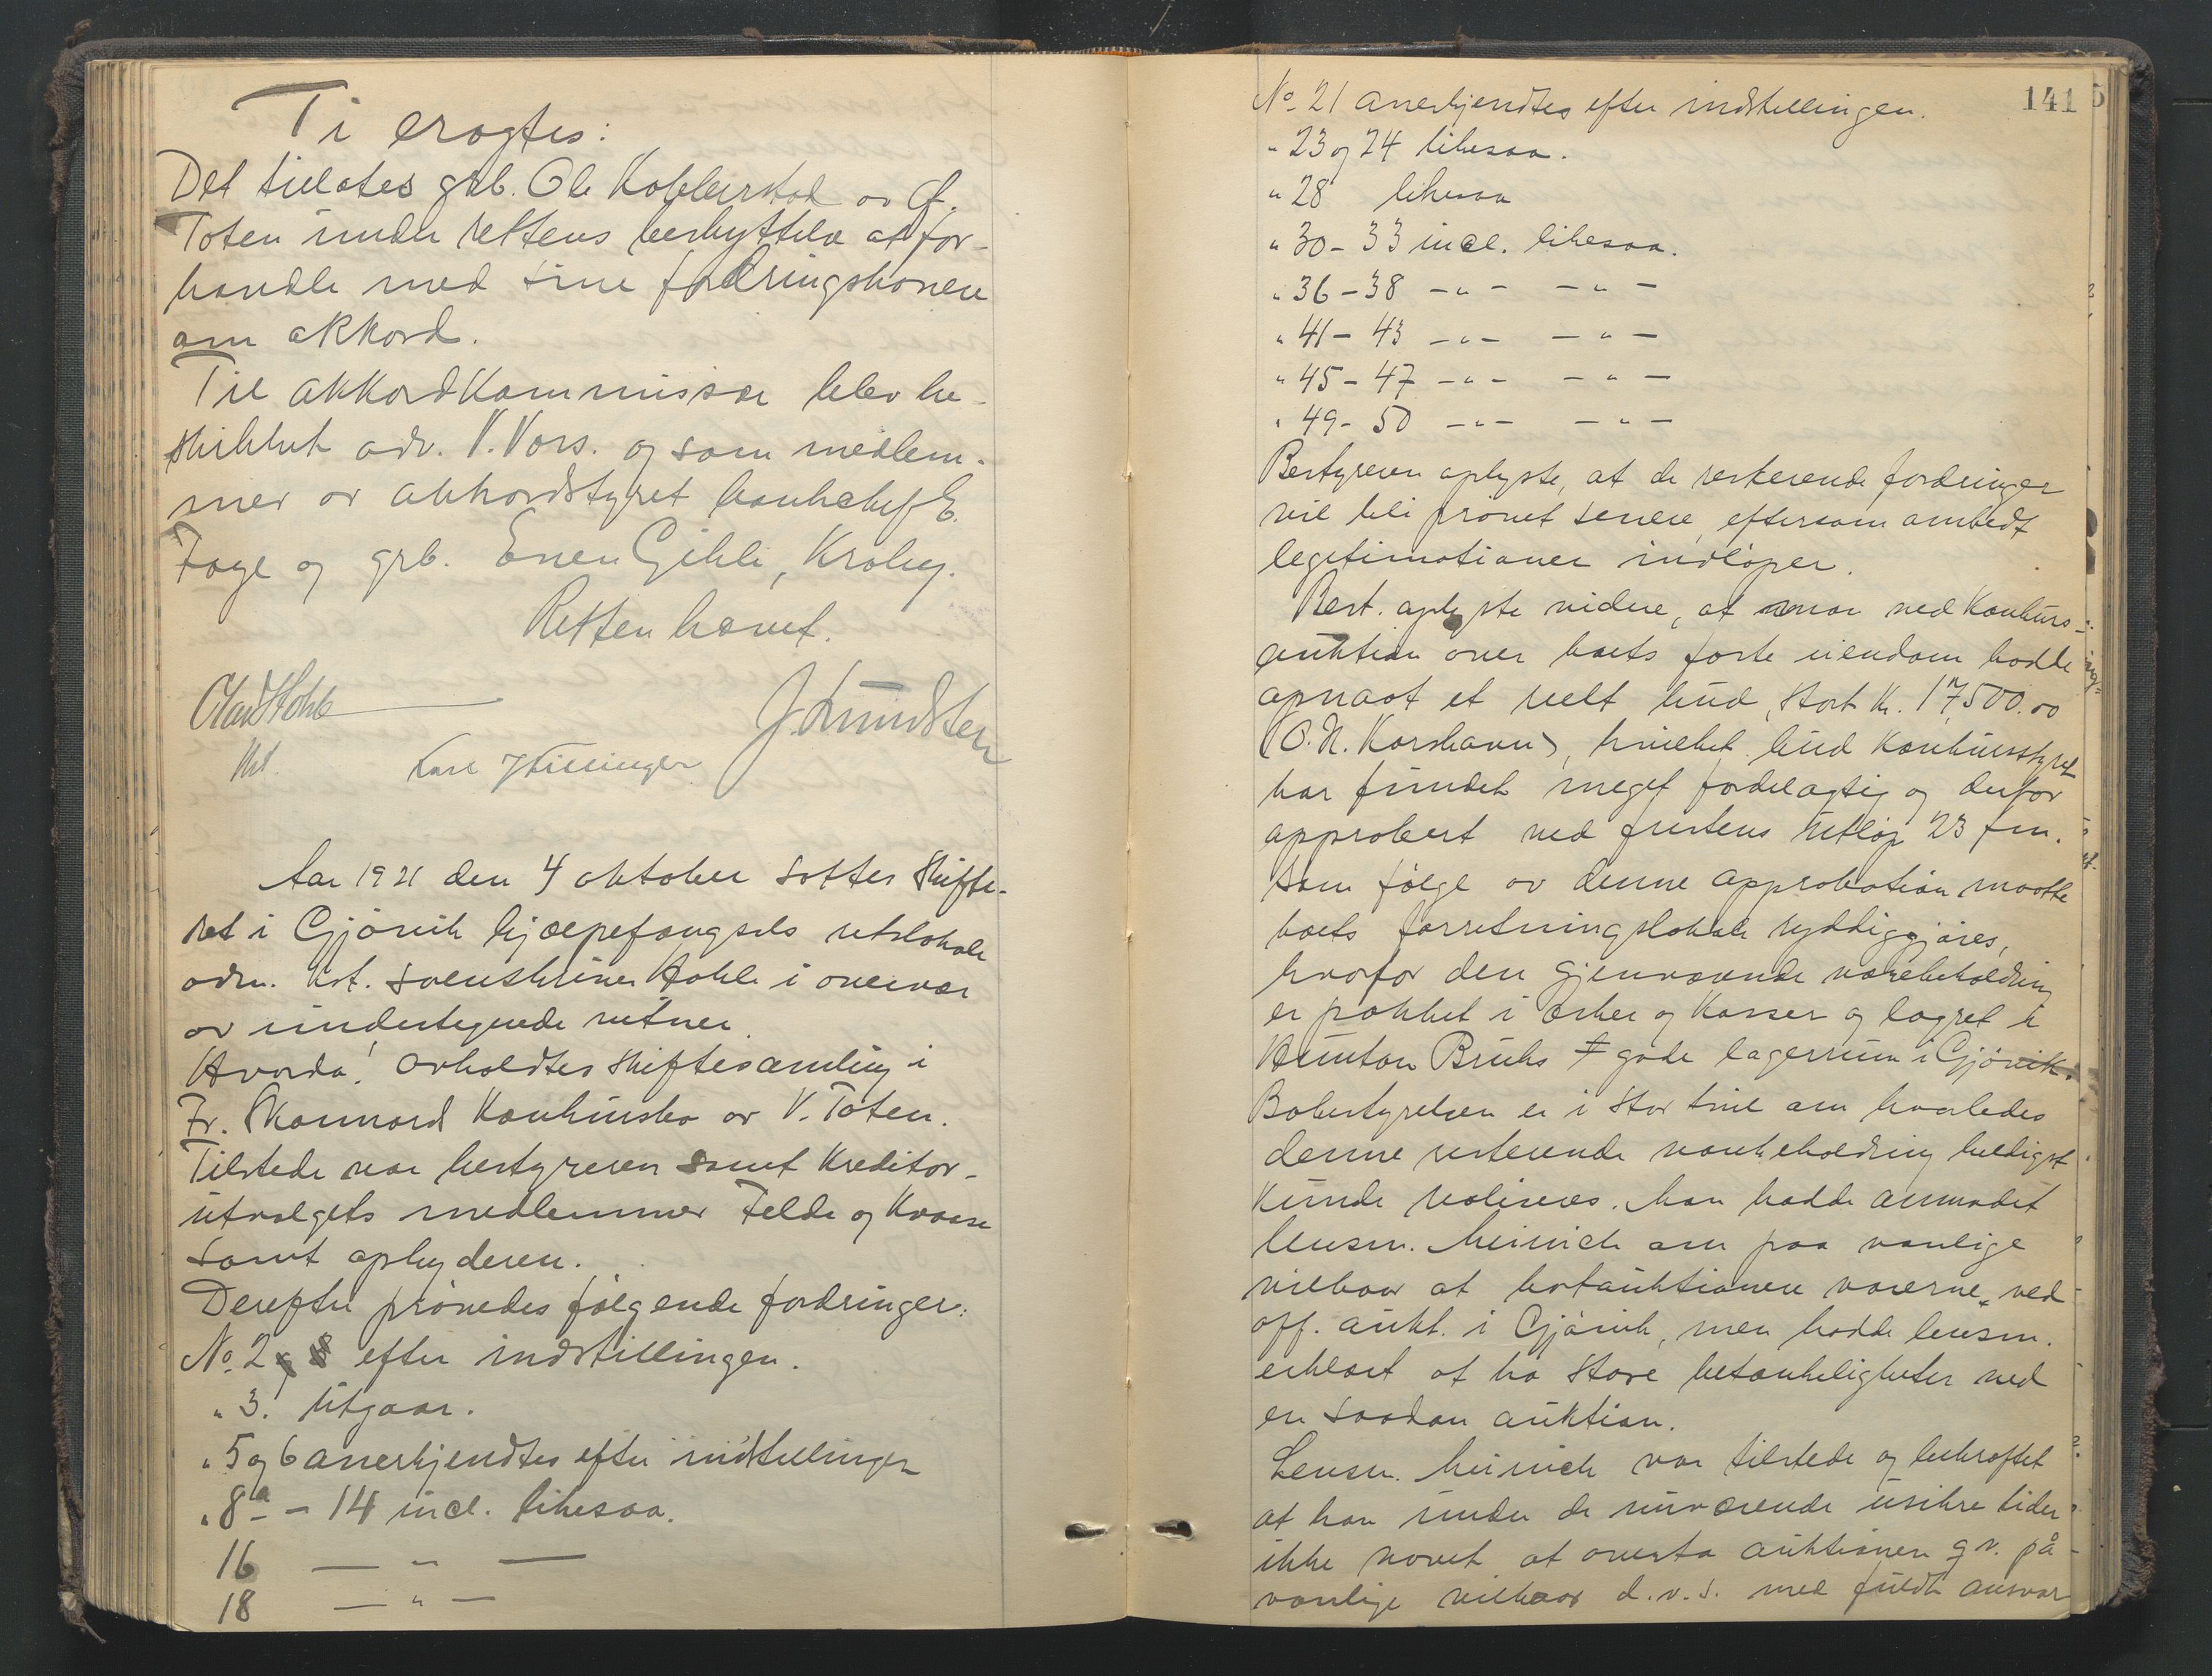 Ti eragtes:
Det tillates grb. Ole Kobberstad av Ø.
Toten under rettens beskyttelse at for-
handle med sine fordringshavere
om akkord.
Til akkordkommissær blev be-
skikket adv. V. Vors. og som medlem-
mer av akkordstyret bankchef E.
Foye og grb. Even Gihle, Kraby.
Retten hævet.
J. Lundsten
Kst.
Aar 1921 den 4 oktober sattes Skifte-
ret i Gjøvik hjælpefængsels retslokale
adm. kst. sorenskriver Hohle i overvær
av undertegnede vitner.
Hvorda! avholdtes skiftesamling i
Fr. Skonnord konkursbo av V. Toten.
Tilstede var bestyreren samt Kreditor-
utvalgets medlemmer Felde og Kraase
samt opbyderen.
Derefter prøvedes følgende fordringer:
No. 2 efter indstillingen.
" 3. utgaar.
" 5 og 6 anerkjendtes efter indstillingen
" 8a - 14 incl. likesaa.
16 — " —
18 — " —
141
No. 21 anerkjendtes efter indstillingen.
" 23 og 24 likesaa.
" 28 likesaa
" 30 - 33 incl. likesaa.
" 36 - 38 - " - - " -
" 41 - 43 - " - - " -
" 45 - 47 - " - - " -
" 49 - 50 - " - - " -
Bestyreren oplyste, at de resterende fordringer
vil bli prøvet senere, eftersom ombedt
legitimationer indløper.
Best. oplyste videre, at man ved konkurs-
auktion over boets faste eiendom hadde
opnaat et reelt bud, stort kr. 17,500.00
(O. N. Korshavn), hvilket bud konkursstyret
har fundet meget fordelagtig og derfor
approbert ved fristens utløp 23 f.m.
Som følge av denne approbation maatte
boets forretningslokale ryddiggjøres,
hvorfor den gjenværende varebeholdning
er pakket i æsker og kasser og lagret i
Hunton Bruks gode lagerrum i Gjøvik.
Bobestyrelsen er i stor tvil om hvorledes
denne resterende varebeholdning heldigst
kunde realiseres. Man hadde anmodet
lensm. Meinich om paa vanlige
vilkaar at bortauktionere varerne ved
off. aukt. i Gjøvik, men hadde lensm.
erklært at ha store betænkeligheter ved
en saadan auktion.
Lensm. Meinich var tilstede og bekræftet
at han under de nuværende usikre tider
ikke vovet at overta auktionen g.v. på
vanlige vilkaar d.v.s. med fuldt ansvar